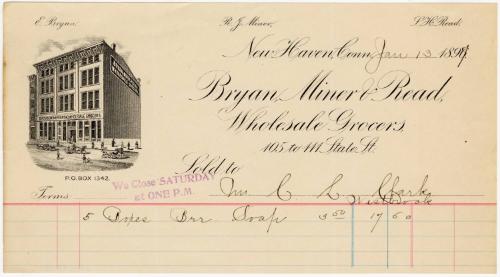 E. Bryan. R. J. Miner. S. H. Read.
New Haven, Conn. Jan 13 1897
Bryan, Miner & Read,
Wholesale Grocers,
105 to 111 State St.
P.O. BOX 1342.
Sold to
We Close SATURDAY
at ONE P.M.
Terms
Mr C L Clark
Westbrook
5 Boxes Soap 3 50 17 50